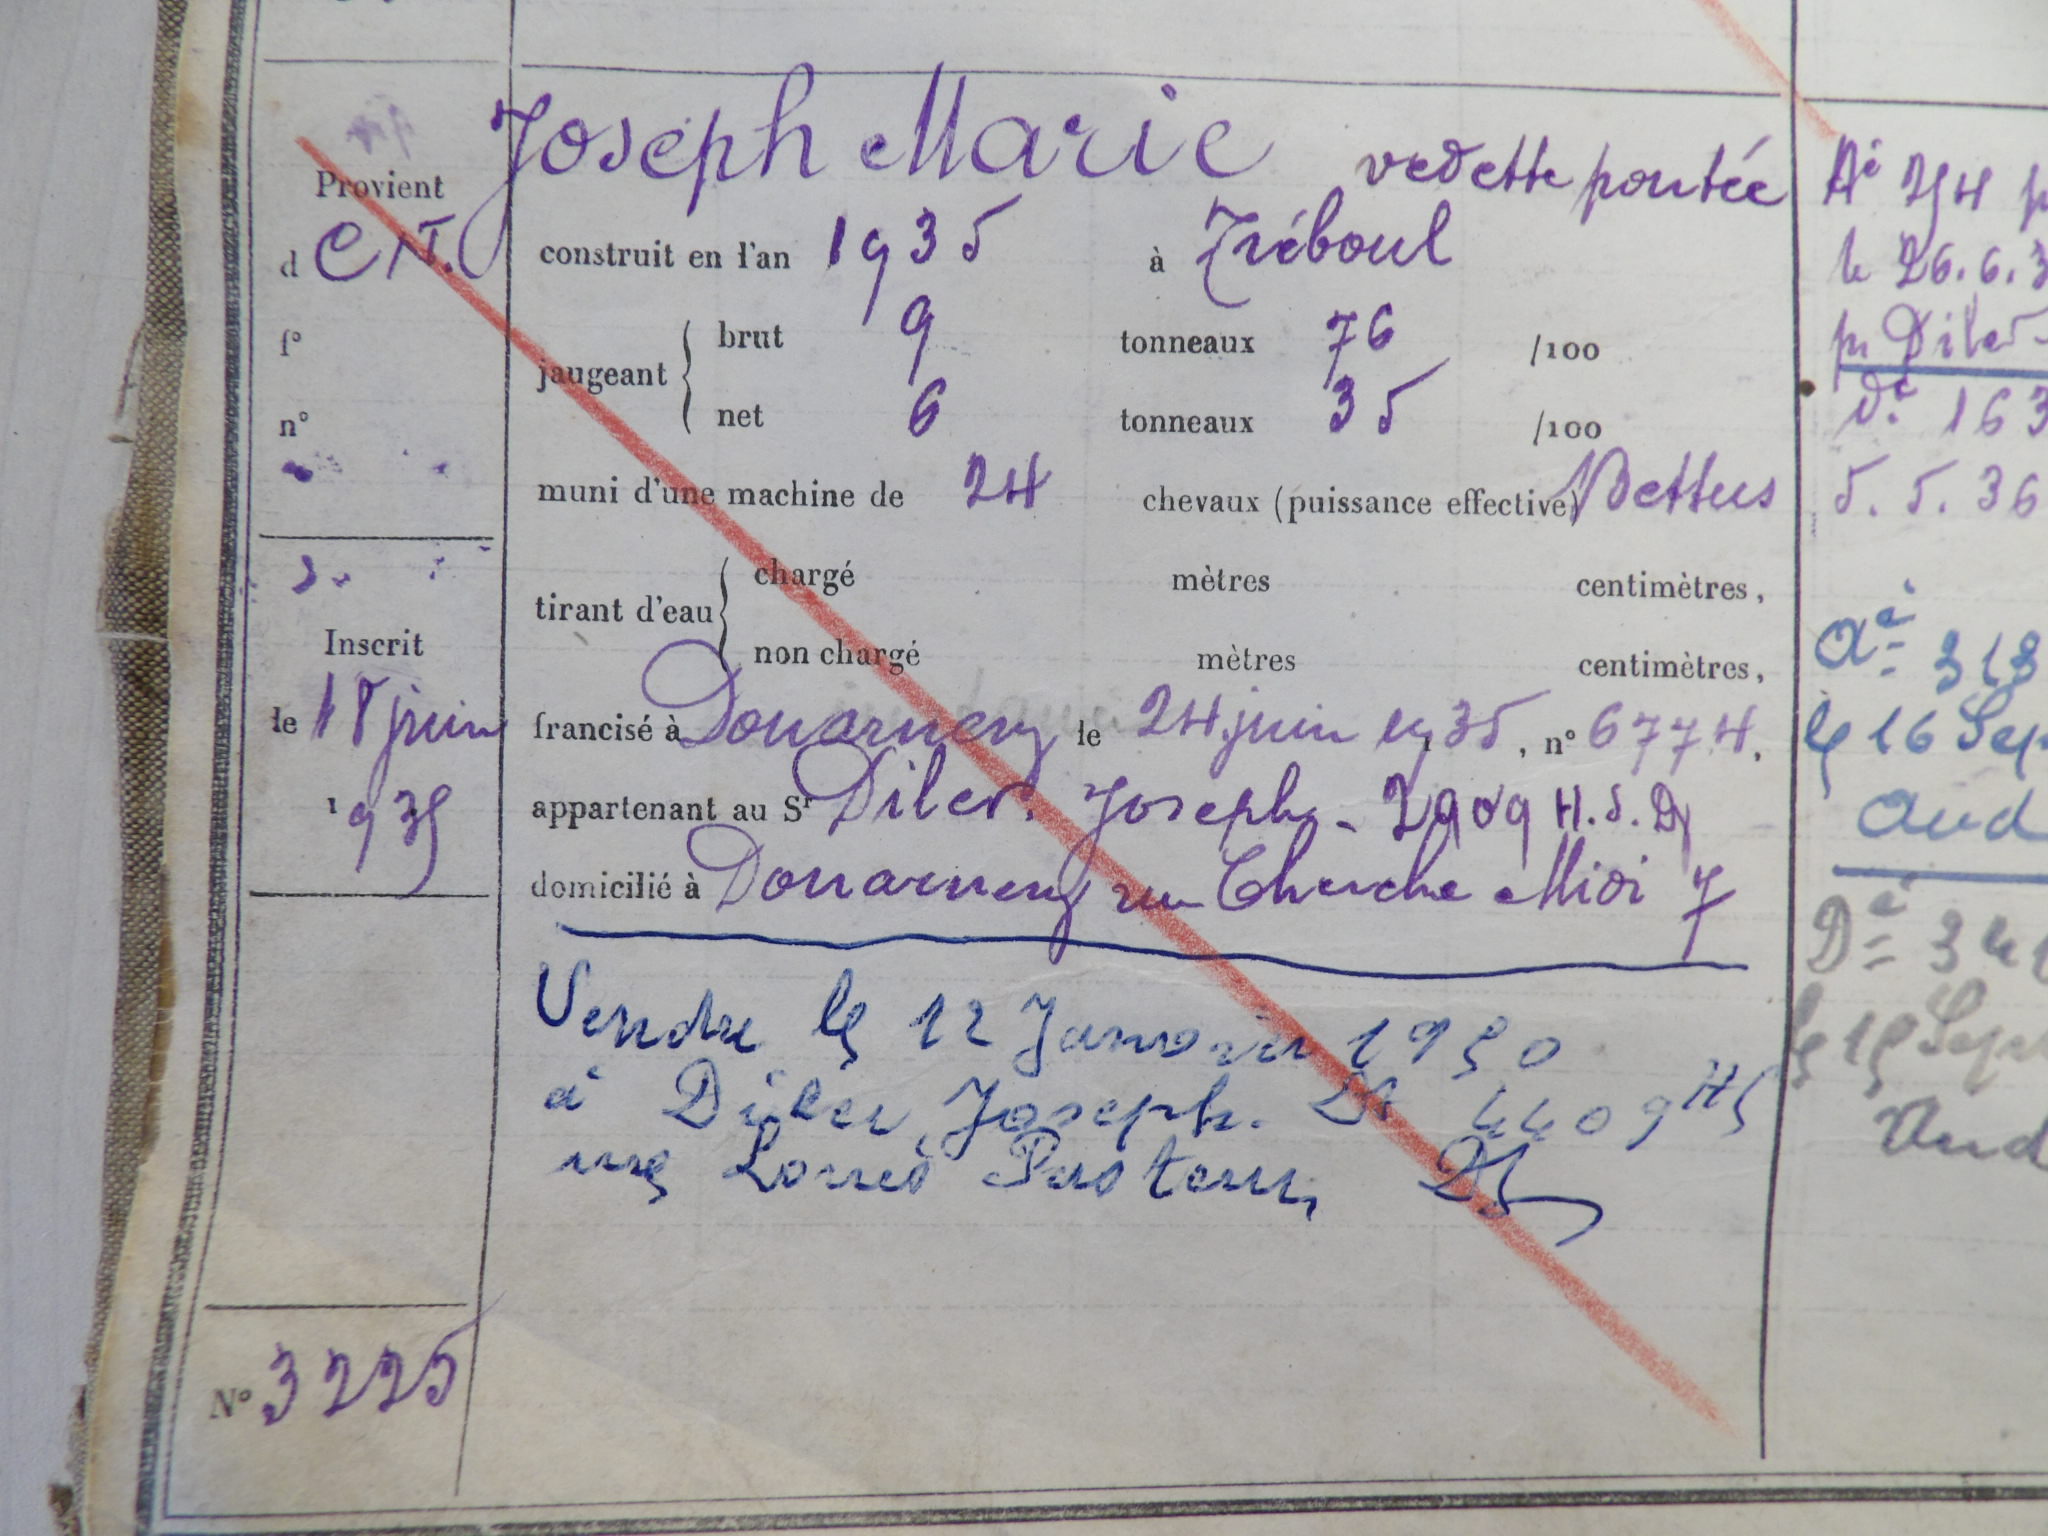 Joseph Marie vedette pontée
Provient
d CN.
f°
n°
construit en l'an 1935 à Tréboul
jaugeant { brut 9 tonneaux 76 /100
net 6 tonneaux 35 /100
muni d'une machine de 24 chevaux (puissance effective)
tirant d'eau { chargé mètres centimètres,
non chargé mètres centimètres,
Inscrit
le 18 juin
1935
francisé à Douarnenez le 24 juin 1935, n° 6774,
appartenant au Sr Diler Joseph - 2909 H.S. Dz
domicilié à Douarnenez rue Cherche Midi 7
Vendu le 12 Janvier 1950
à Diler Joseph. Dz 4409 HS
rue Louis Pasteur, Dz
N° 3225
Aé 294
le 26.6.3
pr Diler
Dé 163
5.5.36
Aé 313
le 16 Sep
Aud
Dé
le 19 Sept
Aud